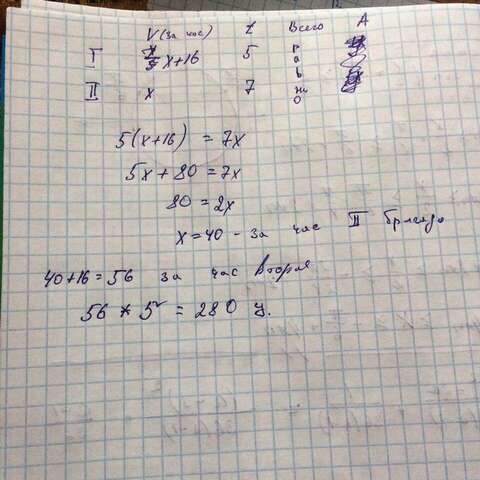 V (за час) t Всего A
I x+16 5 равно
II x 7
5(x+16) = 7x
5x + 80 = 7x
80 = 2x
x = 40 - за час II бригада
40+16 = 56 за час вторая
56 * 5 = 280 у.